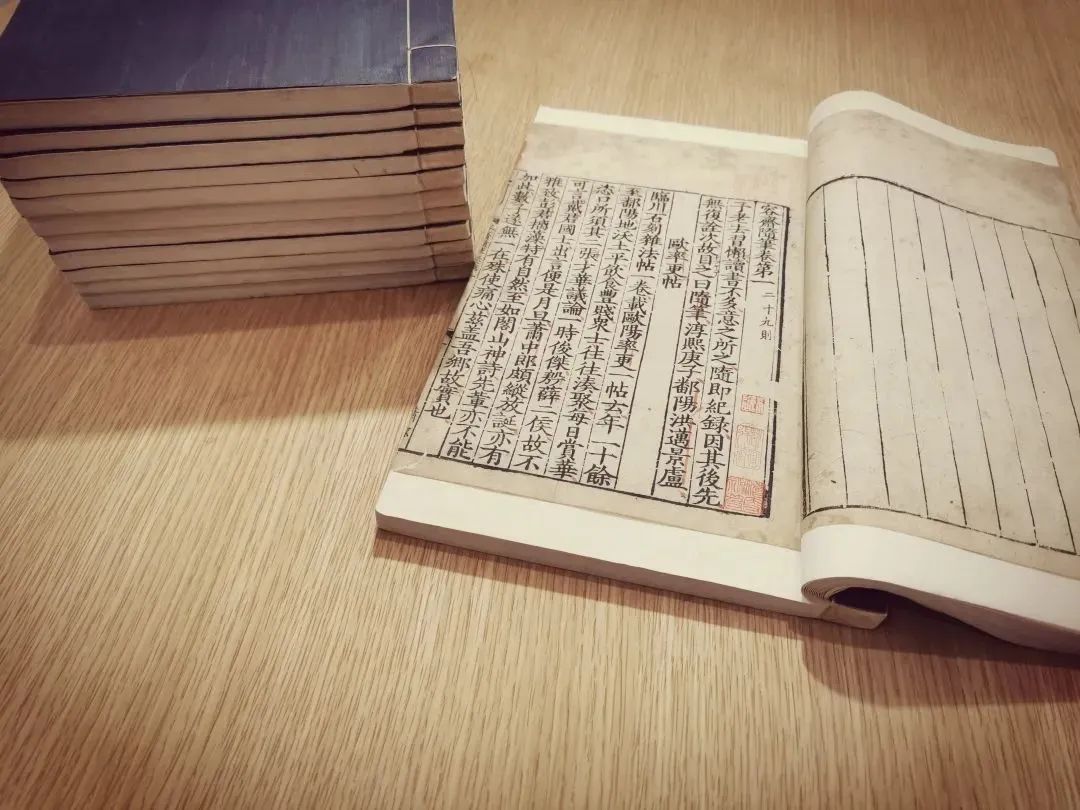 容齋隨筆卷第一 二十九則
予老去習懶讀書不多意之所之隨即紀錄因其後先
無復詮次故目之曰隨筆淳熙庚子鄱陽洪邁景盧
歐率更帖
臨川石刻雜法帖一卷載歐陽率更一帖云年二十餘
至鄱陽地沃土平飲食豐賤衆士往往湊聚每日賞華
恣口所須其二張才華議論一時俊傑殷薛二侯故不
可言戴君國士出言便是月旦蕭中郎頗縱放誕亦有
雅致彭君摛藻特有自然至如閣山神詩先輩亦不能
加此數子遂無一在殊使痛心茲蓋吾鄉故實也